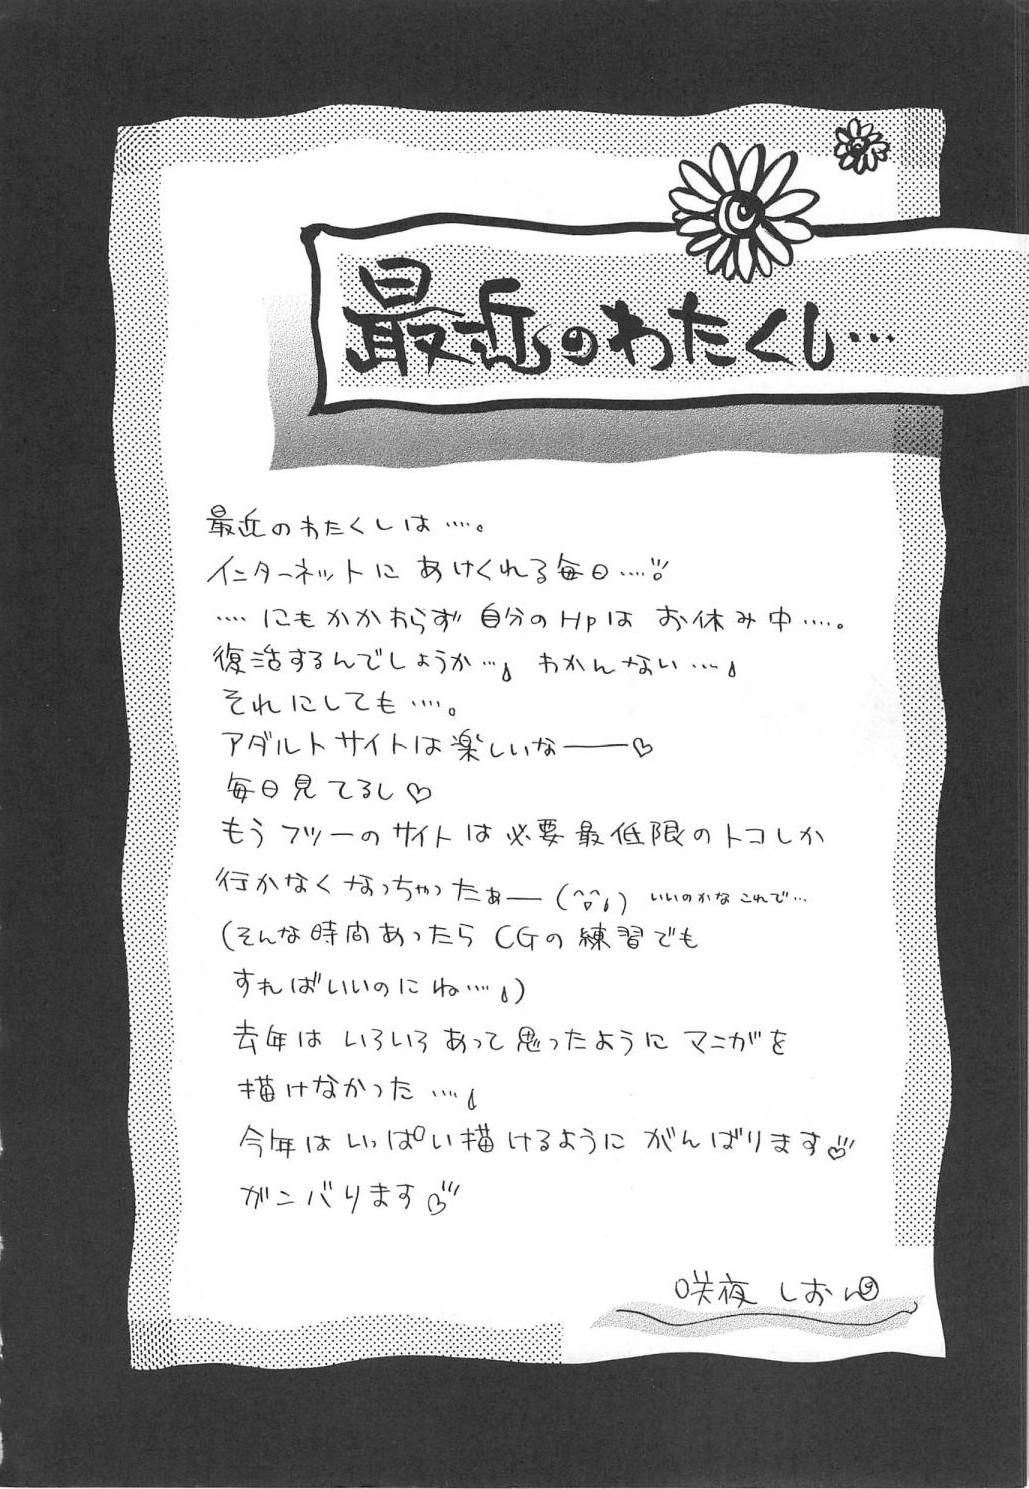 最近のわたくし…
最近のわたくしは‥‥。
インターネットに あけくれる毎日‥‥
‥‥にもかかわらず 自分のHpは お休み中‥‥。
復活するんでしょうか‥‥ わかんない‥‥
それにしても‥‥。
アダルトサイトは楽しいなーー♡
毎日見てるし♡
もうフツーのサイトは必要最低限のトコしか
行かなくなっちゃったぁー (^▽^;) いいのかな これで…
(そんな時間あったら CGの練習でも
すればいいのにね‥‥)
去年は いろいろあって思ったように マニガを
描けなかった‥‥
今年は いっぱい描けるように がんばります♡
ガンバります♡
咲夜 しおん